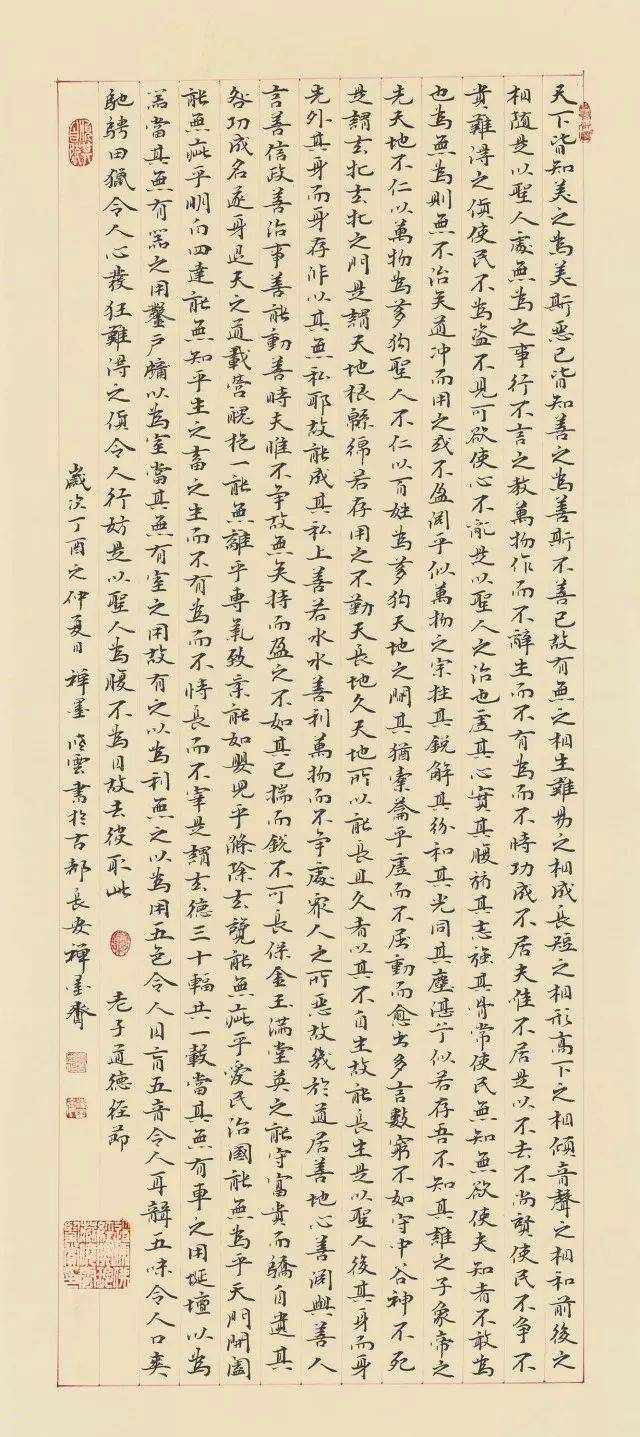 天下皆知美之為美斯惡已皆知善之為善斯不善已故有無之相生難易之相成長短之相形高下之相傾音聲之相和前後之
相随是以聖人處無為之事行不言之教萬物作而不辭生而不有為而不恃功成不居夫隹不居是以不去不尚賢使民不爭不
貴難得之貨使民不為盜不見可欲使心不亂是以聖人之治也虛其心實其腹弱其志強其骨常使民無知無欲使夫知者不敢為
也為無為則無不治矣道沖而用之或不盈淵乎似萬物之宗挫其銳解其紛和其光同其塵湛兮似若存吾不知其誰之子象帝之
先天地不仁以萬物為芻狗聖人不仁以百姓為芻狗天地之間其猶橐籥乎虛而不屈動而愈出多言數窮不如守中谷神不死
是謂玄牝玄牝之門是謂天地根緜綿若存用之不勤天長地久天地所以能長且久者以其不自生故能長生是以聖人後其身而身
先外其身而身存非以其無私耶故能成其私上善若水水善利萬物而不爭處眾人之所惡故幾於道居善地心善淵與善人
言善信政善治事善能動善時夫唯不爭故無矣持而盈之不如其已揣而銳不可長保金玉滿堂莫之能守富貴而驕自遺其
咎功成名遂身退天之道載營魄抱一能無離乎專氣致柔能如嬰兒乎滌除玄覽能無疵乎愛民治國能無為乎天門開闔
能無疵乎明白四達能無知乎生之畜之生而不有為而不恃長而不宰是謂玄德三十輻共一轂當其無有車之用埏埴以為
器當其無有器之用鑿戶牖以為室當其無有室之用故有之以為利無之以為用五色令人目盲五音令人耳聾五味令人口爽
馳騁田獵令人心發狂難得之貨令人行妨是以聖人為腹不為目故去彼取此 老子道德經節
歲次丁酉之仲夏日禪墨雲書於古都長安禪墨齋